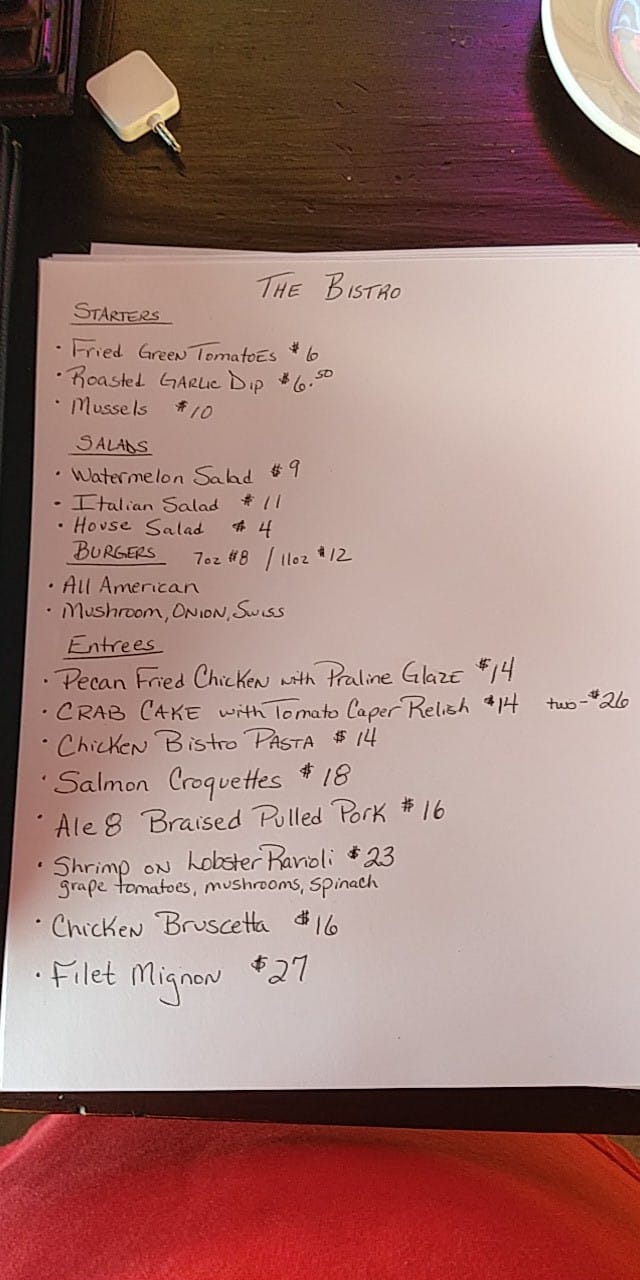 THE BISTRO
STARTERS
• Fried Green Tomatoes $6
• Roasted Garlic Dip $6.50
• Mussels $10
SALADS
• Watermelon Salad $9
- Italian Salad $11
• House Salad $4
BURGERS 7oz $8 / 11oz $12
• All American
• Mushroom, Onion, Swiss
Entrees
• Pecan Fried Chicken with Praline Glaze $14
• CRAB CAKE with Tomato Caper Relish $14 two-$26
• Chicken Bistro PASTA $14
• Salmon Croquettes $18
• Ale 8 Braised Pulled Pork $16
• Shrimp on Lobster Ravioli $23
grape tomatoes, mushrooms, spinach
• Chicken Bruscetta $16
• Filet Mignon $27